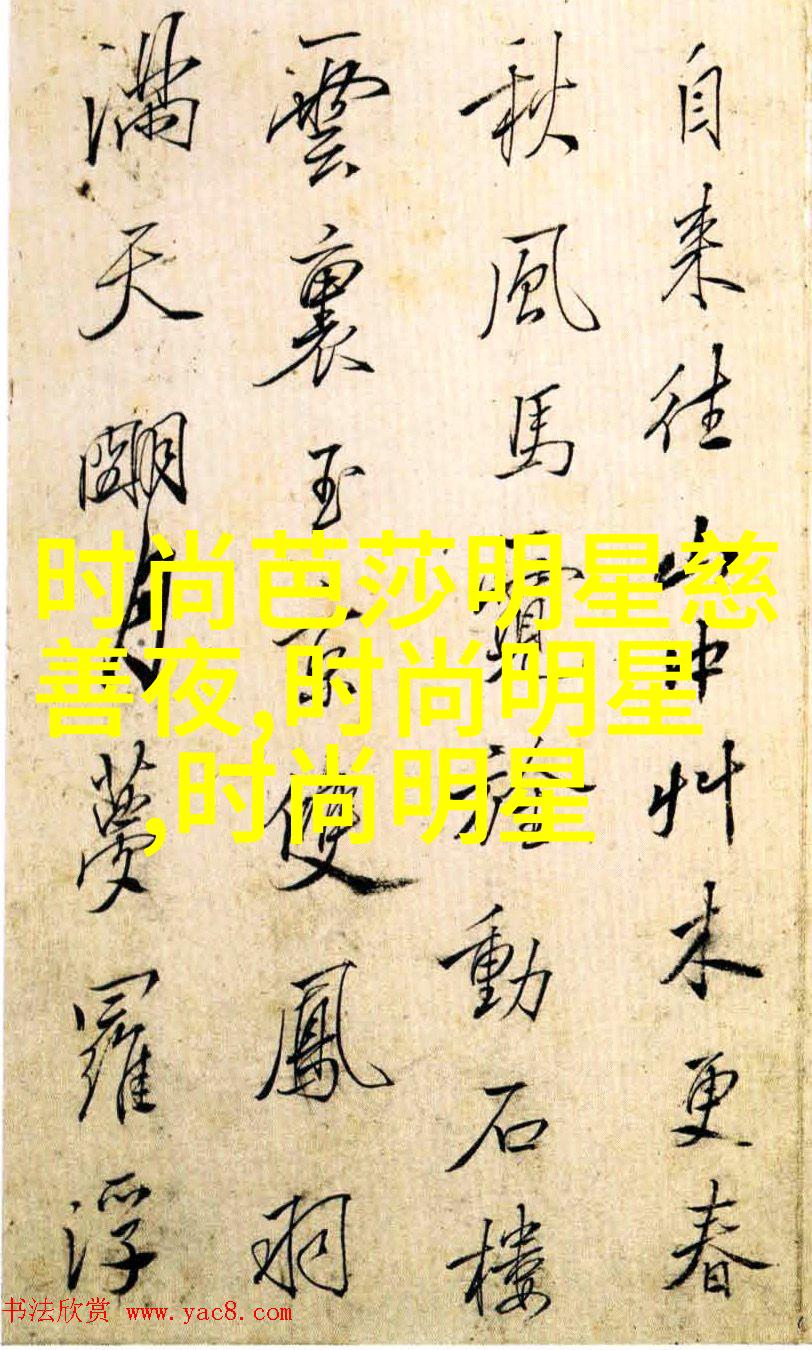 自来往山中艸木更春
秋風馬霓旌動石樓
雲裏玉京雙鳳
满天明月夢羅浮
时尚芭莎明星慈
善夜,时尚明星
,时尚明星
书法欣赏 www.yac8.com